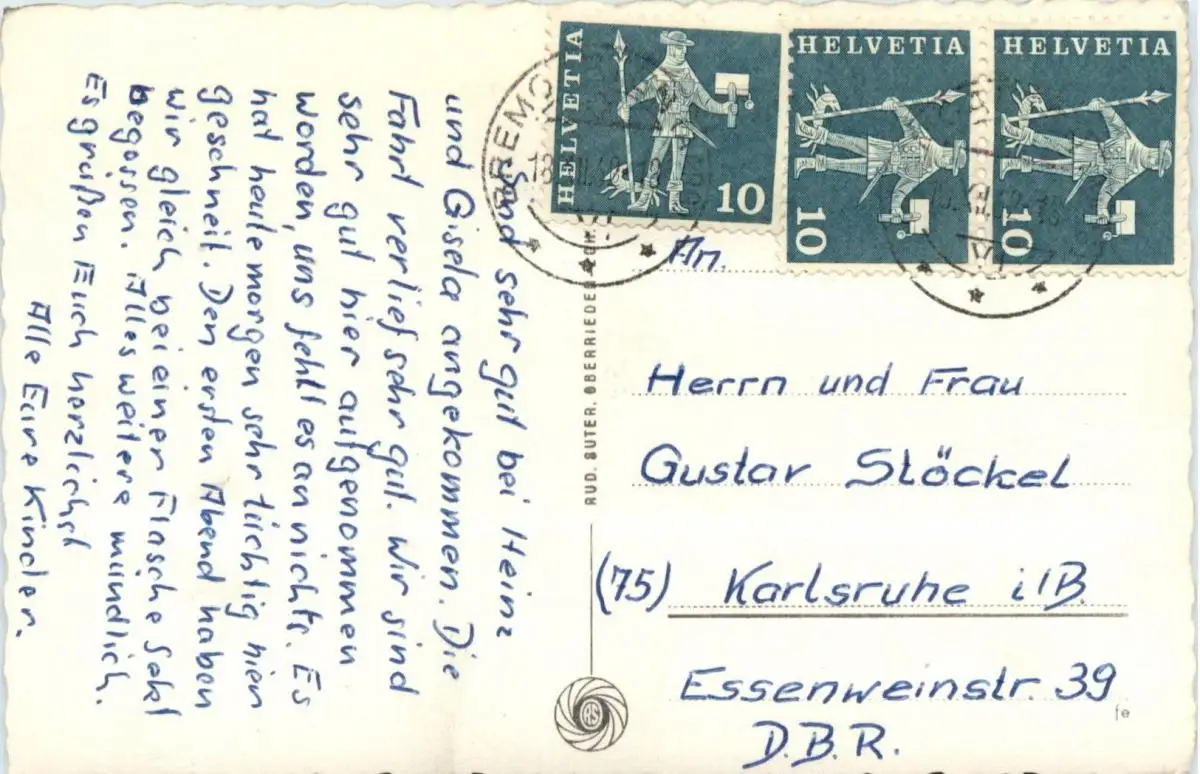 Sind sehr gut bei Heinz
und Gisela angekommen. Die
Fahrt verlief sehr gut. Wir sind
sehr gut hier aufgenommen
worden, uns fehlt es an nichts. Es
hat heute morgen sehr tüchtig hier
geschneit. Den ersten Abend haben
wir gleich bei einer Flasche Sekt
begossen. Alles weitere mündlich.
Es grüßen Euch herzlichst
Alle Eure Kinder.
HELVETIA
10
HELVETIA
10
HELVETIA
10
An.
Herrn und Frau
Gustav Stöckel
(75) Karlsruhe i/B.
Essenweinstr. 39
D.B.R.
RUD. SUTER, OBERRIEDEN
RS
fe